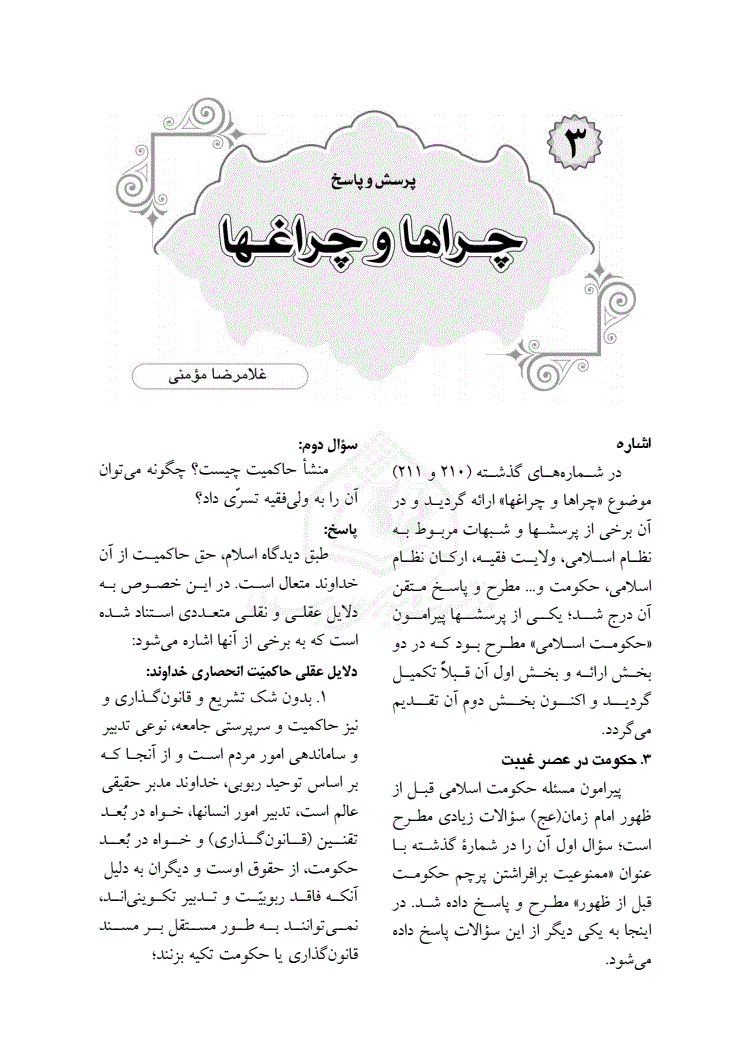 ۳
پرسش و پاسخ
چراها و چراغها
غلامرضا مؤمنی
اشاره
در شماره‌های گذشته (۲۱۰ و ۲۱۱)
موضوع «چراها و چراغها» ارائه گردید و در
آن برخی از پرسشها و شبهات مربوط به
نظام اسلامی، ولایت فقیه، ارکان نظام
اسلامی، حکومت و... مطرح و پاسخ متقن
آن درج شد؛ یکی از پرسشها پیرامون
«حکومت اسلامی» مطرح بود که در دو
بخش ارائه و بخش اول آن قبلاً تکمیل
گردید و اکنون بخش دوم آن تقدیم
می‌گردد.
۳. حکومت در عصر غیبت
پیرامون مسئله حکومت اسلامی قبل از
ظهور امام زمان(عج) سؤالات زیادی مطرح
است؛ سؤال اول آن را در شمارۀ گذشته با
عنوان «ممنوعیت برافراشتن پرچم حکومت
قبل از ظهور» مطرح و پاسخ داده شد. در
اینجا به یکی دیگر از این سؤالات پاسخ داده
می‌شود.
سؤال دوم:
منشأ حاکمیت چیست؟ چگونه می‌توان
آن را به ولی‌فقیه تسرّی داد؟
پاسخ:
طبق دیدگاه اسلام، حق حاکمیت از آن
خداوند متعال است. در این خصوص به
دلایل عقلی و نقلی متعددی استناد شده
است که به برخی از آنها اشاره می‌شود:
دلایل عقلی حاکمیّت انحصاری خداوند:
۱. بدون شک تشریع و قانون‌گذاری و
نیز حاکمیت و سرپرستی جامعه، نوعی تدبیر
و ساماندهی امور مردم است و از آنجا که
بر اساس توحید ربوبی، خداوند مدبر حقیقی
عالم است، تدبیر امور انسانها، خواه در بُعد
تقنین (قانون‌گذاری) و خواه در بُعد
حکومت، از حقوق اوست و دیگران به دلیل
آنکه فاقد ربوبیّت و تدبیر تکوینی‌اند،
نمی‌توانند به طور مستقل بر مسند
قانون‌گذاری یا حکومت تکیه بزنند؛